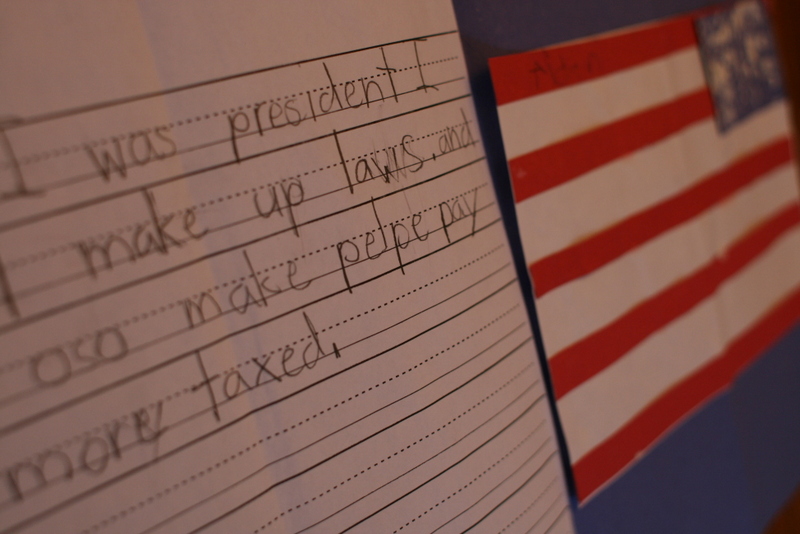 I was president I
make up laws.and
oso make pelpe pay
more taxed.